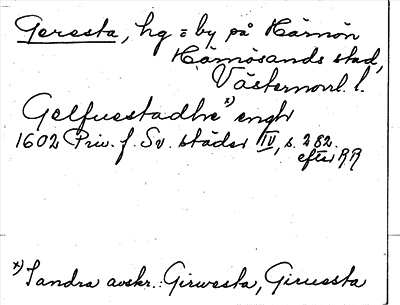 Geresta, hg = by på Härnön
Härnösands stad,
Västernorrl. l.
Gelfuestadhe x) engh
1602 Priv. f. Sv. städer IV, s. 282.
efter RR
x) Sandra avskr.: Girwesta, Giruesta